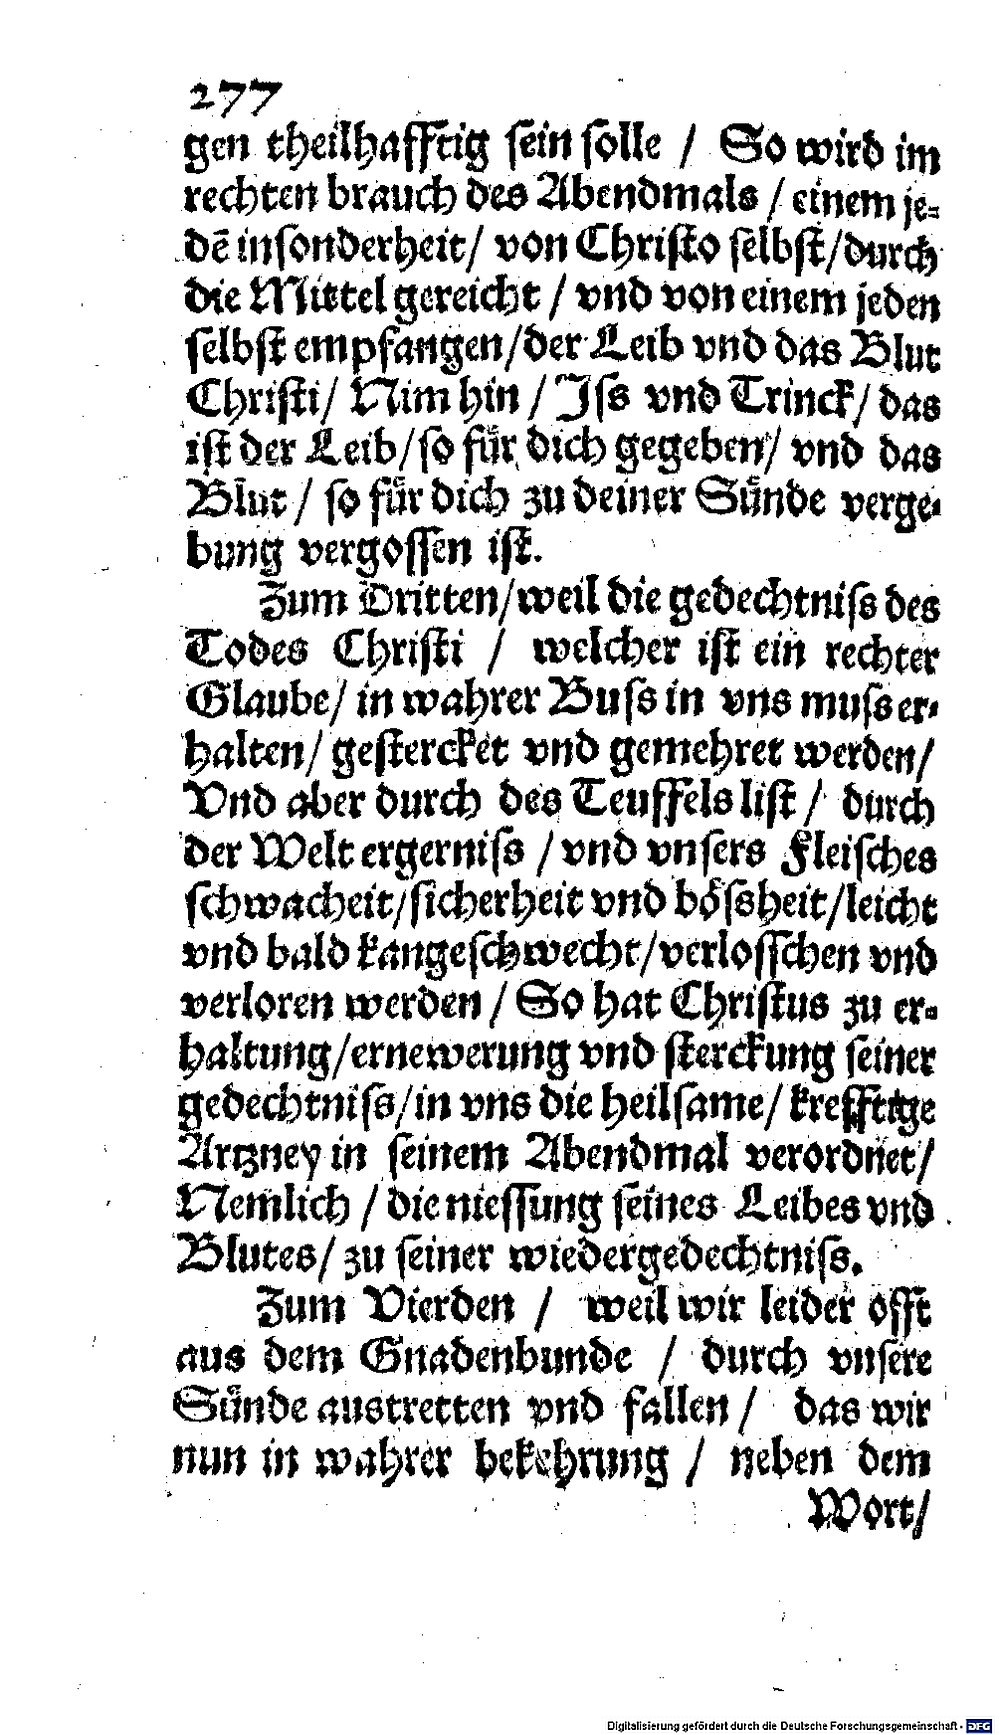 277
gen theilhafftig ſein ſolle / So wird im
rechten brauch des Abendmals / einem je⸗
dē inſonderheit / von Chriſto ſelbſt / durch
die Mittel gereicht / vnd von einem jeden
ſelbſt empfangen / der Leib vnd das Blut
Chriſti / Nim hin / Iſs vnd Trinck / das
iſt der Leib / ſo fuͤr dich gegeben / vnd das
Blut / ſo fuͤr dich zu deiner Suͤnde verge⸗
bung vergoſſen iſt.
Zum Dritten / weil die gedechtniſs des
Todes Chriſti / welcher iſt ein rechter
Glaube / in wahrer Buſs in vns muſs er⸗
halten / geſtercket vnd gemehret werden /
Vnd aber durch des Teuffels liſt / durch
der Welt ergerniſs / vnd vnſers Fleiſches
ſchwacheit / ſicherheit vnd boͤſsheit / leicht
vnd bald kan geſchwecht / verloſſchen vnd
verloren werden / So hat Chriſtus zu er⸗
haltung / ernewerung vnd ſterckung ſeiner
gedechtniſs / in vns die heilſame / krefftige
Artzney in ſeinem Abendmal verordnet /
Nemlich / die nieſſung ſeines Leibes vnd
Blutes / zu ſeiner wiedergedechtniſs.
Zum Vierden / weil wir leider offt
aus dem Gnadenbunde / durch vnſere
Suͤnde austretten vnd fallen / das wir
nun in wahrer bekehrung / neben dem
Wort /
Digitalisierung gefördert durch die Deutsche Forschungsgemeinschaft - DFG